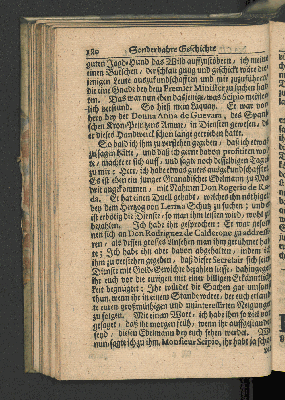 180 Sonderbahre Geschichte
guten Jagd-Hund das Wild auffzustöbern, ich meine
einen Burschen, der schlau genug und geschickt wäre die-
jenige Leute auszukundschafften und mir zuzuführen/
die eine Gnade bey dem Premier Minister zu suchen hät-
ten. Das war nun eben dasjenige, was Scipio meister-
lich verstund. So hieß mein Laquay. Er war vor-
hero bey der Donna Anna de Guevara, des Spani-
schen Kron-Printzens Amme, in Diensten gewesen, da
er dieses Handwerck schon lange getrieben hatte.
So bald ich ihm zu verstehen gegeben, daß ich etwas
zu sagen hätte, und daß ich gerne davon profitiren wol-
te, machte er sich auff, und sagte noch desselbigen Tages
zu mir: Herr, ich habe etwas gutes ausgekundschafftet.
Es ist eben ein junger Granadischer Edelmann zu Ma-
drit angekommen, mit Nahmen Don Rogerio de Ra-
da. Er hat einen Duell gehabt, welcher ihn nöthiget
bey dem Hertzog von Lerma Schutz zu suchen; und
ist erbötig die Dienste, so man ihm leisten wird, wohl zu
bezahlen. Ich habe ihn gesprochen: Er war geson-
nen sich an Don Rodriguez de Calderone zu addressi-
ren, als dessen grosses Ansehen man ihm gerühmet hat-
te; Ich habe ihn aber davon abgehalten, indem ich
ihm zu verstehen gegeben, daß dieser Secretair sich seine
Dienste mit Gold-Gewichte bezahlen liesse, dahingegen
ihr euch vor die eurigen mit einer billigen Erkänntlich-
keit begnügtet; Ihr würdet die Sachen gar umsonst
thun, wenn ihr in einem Stande wäret, der euch erlaub-
te eurer großmüthigen und uninteressirten Neigung
zu folgen. Mit einem Wort, ich habe ihm so viel vor-
gesagt, daß ihr morgen früh, wenn ihr auffgestanden
seyd, diesen Edelmann bey euch sehen werdet. Wie
nun sagte ich zu ihm, Monsieur Scipio, ihr habt ja schon